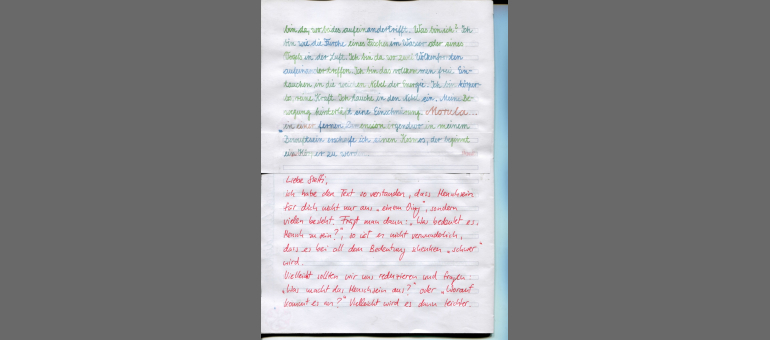 bin da, wo beides aufeinandertrifft. Was bin ich? Ich
bin wie die Furche eines Fisches im Wasser oder eines
Vogels in der Luft. Ich bin da wo zwei Wolkenfor ein
aufeinandertreffen. Ich bin das vollkommen frei. Ein-
tauchen in die weißen Nebel der Energie. Ich bin körper-
lo reine Kraft. Ich tauche in den Nebel ein. Meine Be-
wegung hinterlässt eine Einschränkung.
in einer fernen Dimension irgendwo in meinem
Bewusstsein erschaffe ich einen Kosmos, der beginnt
ein Kö er zu wer
Liebe Steffi,
ich habe den Text so verstanden, dass Menschsein
für dich nicht nur aus „einem Ding“, sondern
vielen besteht. Fragt man dann: „Was bedeutet es,
Mensch zu sein?“, so ist es nicht verwunderlich,
dass es bei all dem Bedeutung schenken „schwer“
wird.
Vielleicht sollten wir uns reduzieren und fragen:
„Was macht das Menschsein aus?“ oder „Worauf
kommt es an?“ Vielleicht wird es dann leichter.